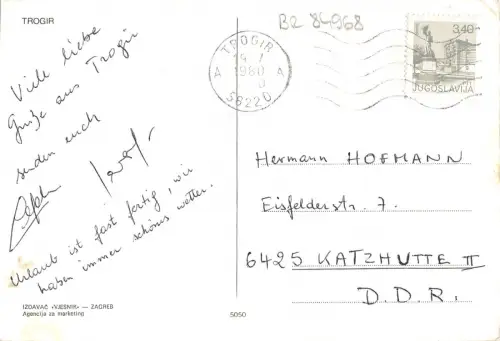 TROGIR
Viele liebe
Grüße aus Trogir
senden euch
Urlaub ist fast fertig, wir
haben immer schönes wetter.
IZDAVAČ «VJESNIK» — ZAGREB
Agencija za marketing
5050
BR 84968
TROGIR
1980
A A
58220
3,40
JUGOSLAVIJA
Hermann HOFMANN
Eisfelderstr. 7.
6425 KATZHUTTE II
D.D.R.